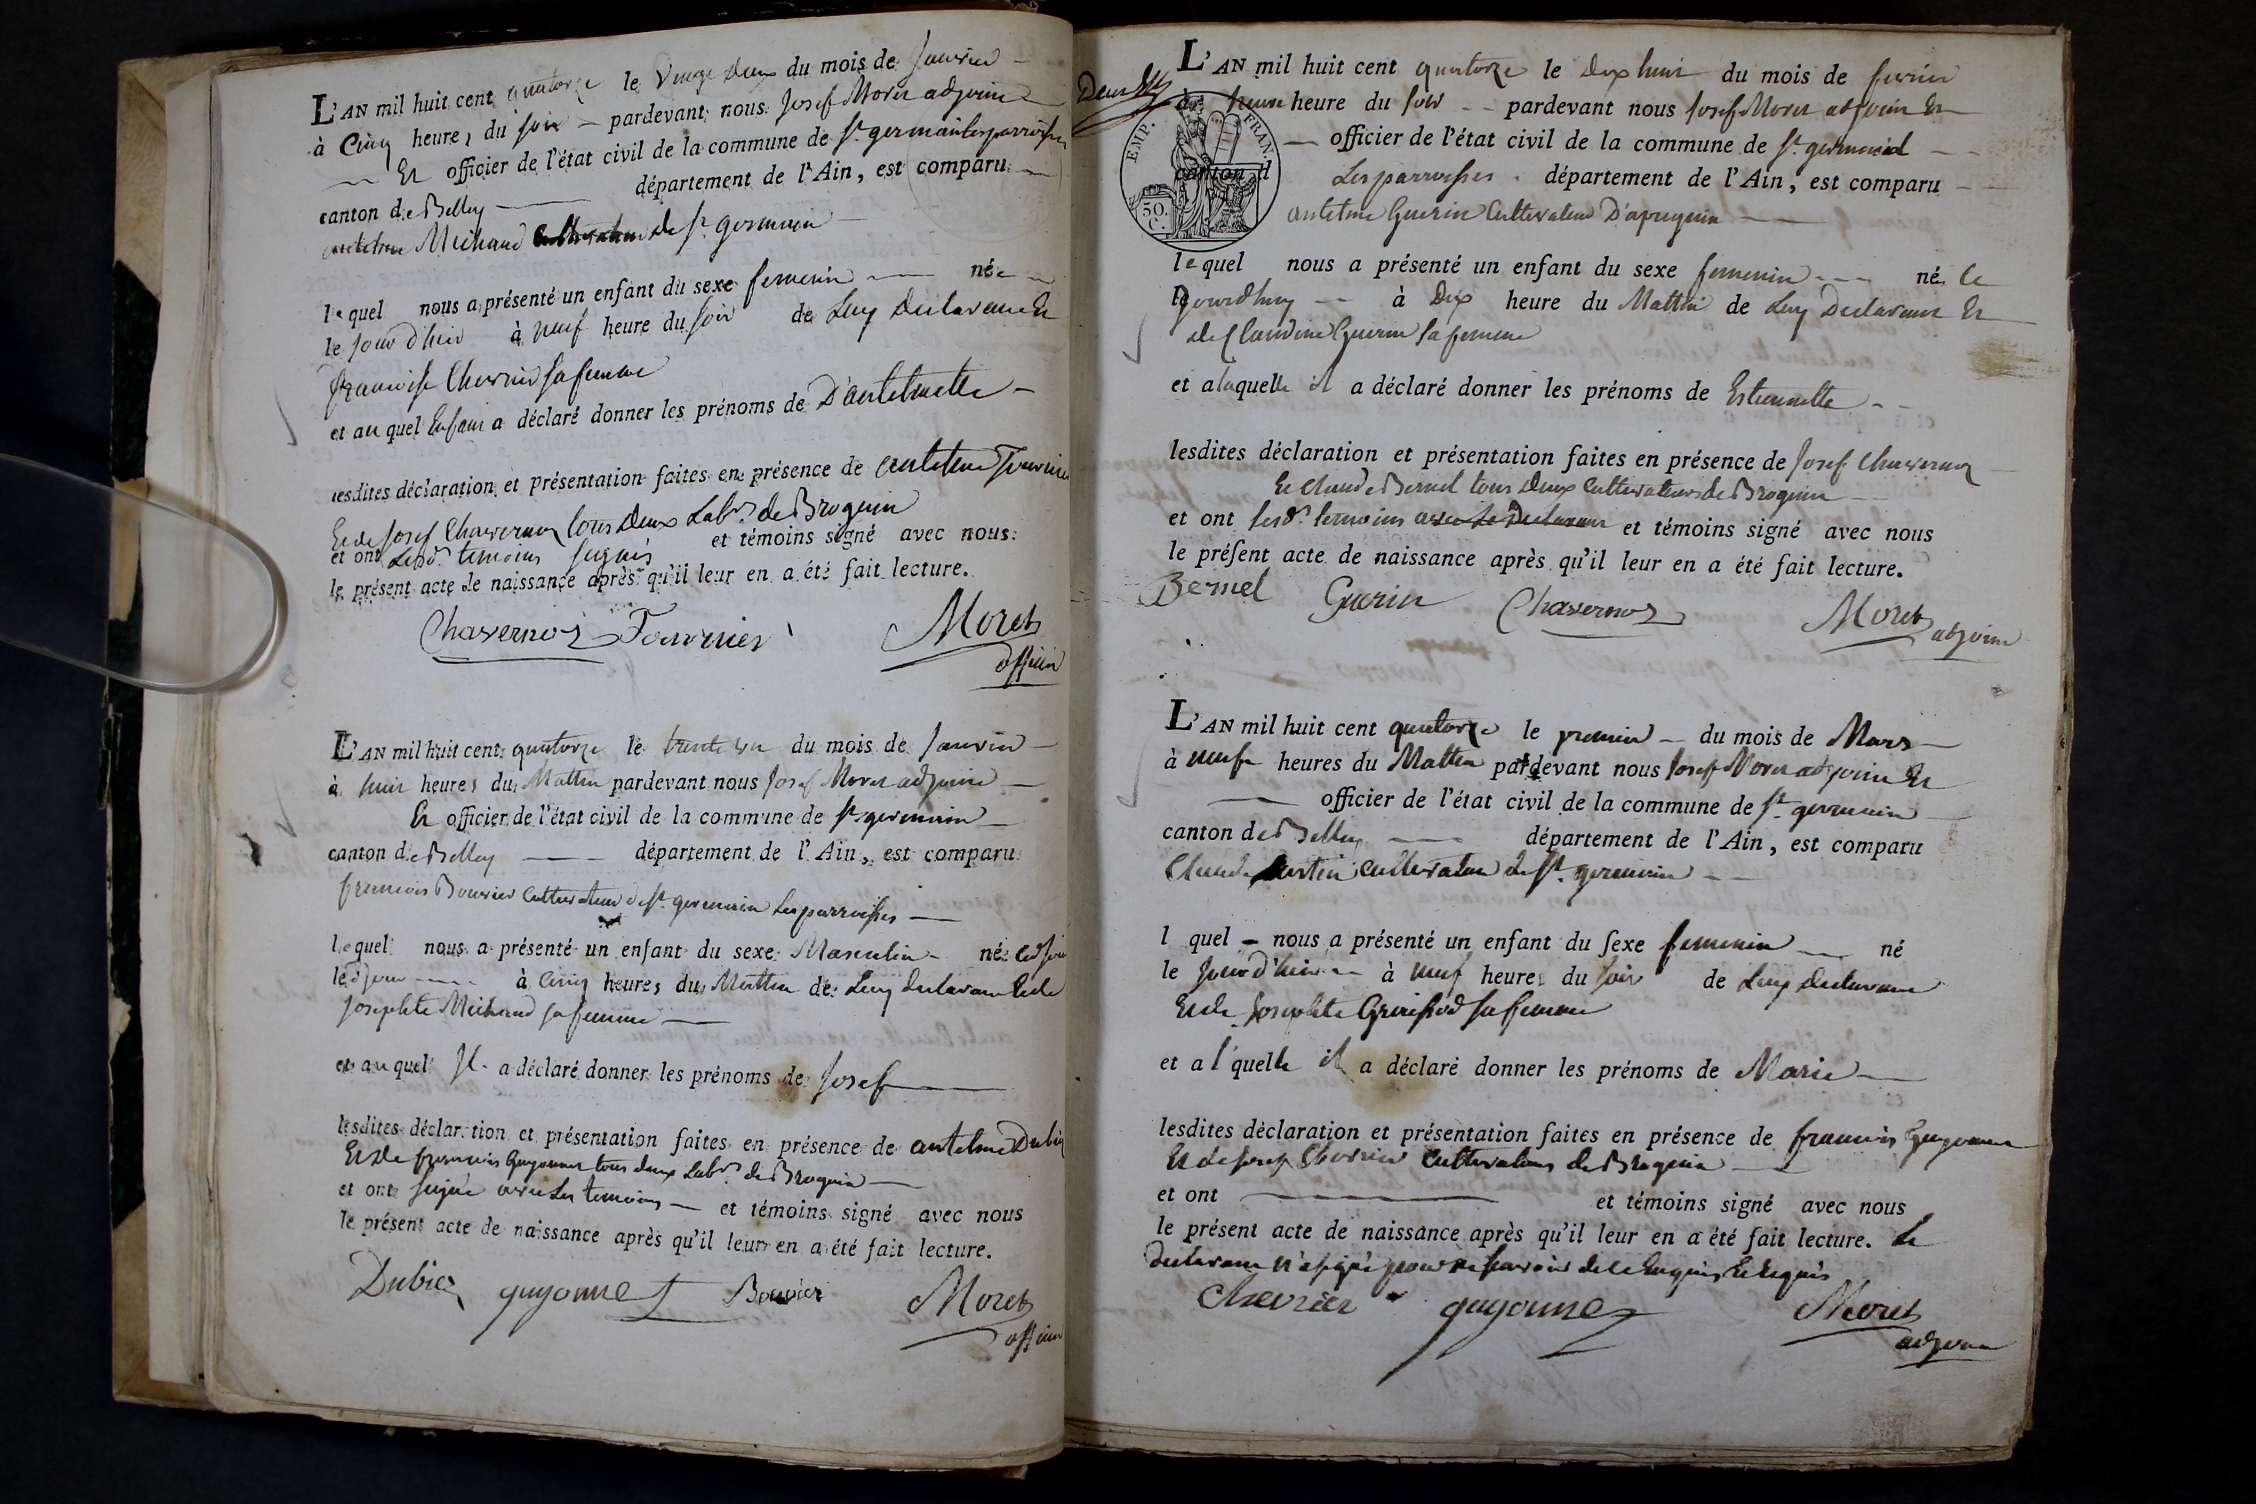 L'AN mil huit cent quatorze le Vingt Deux du mois de Janvier
à Cinq heures du Soir pardevant nous Josef Moret adjoint
Et officier de l'état civil de la commune de St. germain les parroisses
canton de Belley département de l'Ain, est comparu
antelme Michaud de St. germain
lequel nous a présenté un enfant du sexe femenin née
le Jour d'hier à neuf heure du Soir de Luy Declarant Et
francoise Chevrier sa femme
et au quel Enfant a déclaré donner les prénoms de D'antelmette
lesdites déclaration et présentation faites en présence de antelme Fournier
Et de Josef Chavernoz tous Deux Labrs. de Brognin
et ont Lesds. temoins signés et témoins signé avec nous
le présent acte de naissance après qu'il leur en a été fait lecture.
Chavernoz Fournier Moret
officier
L'AN mil huit cent quatorze le trente un du mois de Janvier
à huit heures du Mattin pardevant nous Josef Moret adjoint
Et officier de l'état civil de la commune de St. germain
canton de Belley département de l'Ain, est comparu
francois Bouvier Cultivateur de St. germain Les parroisses
lequel nous a présenté un enfant du sexe Masculin né
led. jour à Cinq heures du Mattin de Luy declarant Et de
Josephte Michaud sa femme
et au quel Il a déclaré donner les prénoms de Josef
lesdites déclaration et présentation faites en présence de antelme Dubiez
Et De francois Guyonnet tous deux Labrs. de Brognin
et ont signé avec Les temoins et témoins signé avec nous
le présent acte de naissance après qu'il leur en a été fait lecture.
Dubiez guyonnet Bouvier Moret
officier
L'AN mil huit cent quatorze le Dix huit du mois de fevrier
à heure du soir pardevant nous Josef Moret adjoint Et
EMP. FRAN.
officier de l'état civil de la commune de St. germain
canton d Les parroisses département de l'Ain, est comparu
50. C.
antelme Guerin Cultivateur D'apregnin
lequel nous a présenté un enfant du sexe femenin né Ce
Jourdhuy à Dix heure du Mattin de Luy Declarant Et
de Claudine Guerin sa femme
et a laquelle il a déclaré donner les prénoms de Estiennette
lesdites déclaration et présentation faites en présence de Josef Chavernoz
Et Claude Bernel tous Deux Cultivateurs de Brognin
et ont lesds. temoins avec Le Declarant et témoins signé avec nous
le préſent acte de naissance après qu'il leur en a été fait lecture.
Bernel Guerin Chavernoz Moret
adjoint
L'AN mil huit cent quatorze le premier du mois de Mars
à neuf heures du Mattin pardevant nous Josef Moret adjoint Et
officier de l'état civil de la commune de St. germain
canton de Belley département de l'Ain, est comparu
Claude cultivateur de St. germain
l quel nous a présenté un enfant du ſexe femenin né
le Jour d'hier à neuf heures du soir de Luy Declarant
Et de Josephte sa femme
et a l'quelle il a déclaré donner les prénoms de Marie
lesdites déclaration et présentation faites en présence de francois Guyonnet
Et de Josef Chevrier Cultivateurs de Brognin
et ont et témoins signé avec nous
le présent acte de naissance après qu'il leur en a été fait lecture. Le
Declarant n'a signé pour ne savoir de ce Enquis Et requis
Chevrier guyonnet Moret
adjoint